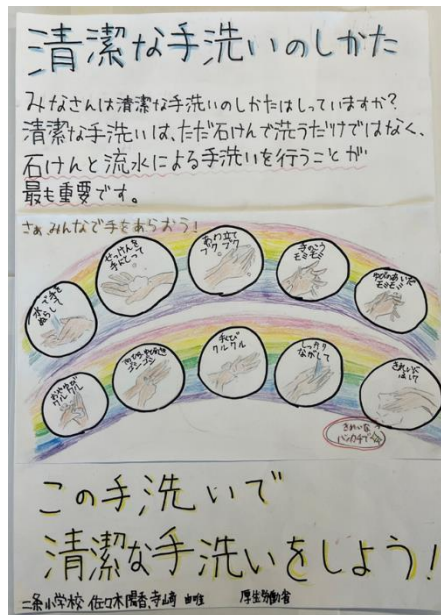 清潔な手洗いのしかた
みなさんは清潔な手洗いのしかたはしっていますか?
清潔な手洗いは、ただ石けんで洗うだけではなく、
石けんと流水による手洗いを行うことが
最も重要です。
さぁ、みんなで手をあらおう!
水で手を
ぬらし
せっけんを
手にとって
あわ立て
ブクブク
手のこう
モミモミ
ゆびのあいだ
モミモミ
おやゆび
クルクル
ゴシゴシ
手くび
クルクル
しっかり
ながして
きれいな
ハンカチで
この手洗いで
清潔な手洗いをしよう!
二条小学校 佐々木陽香、寺崎 由唯 厚生労働省